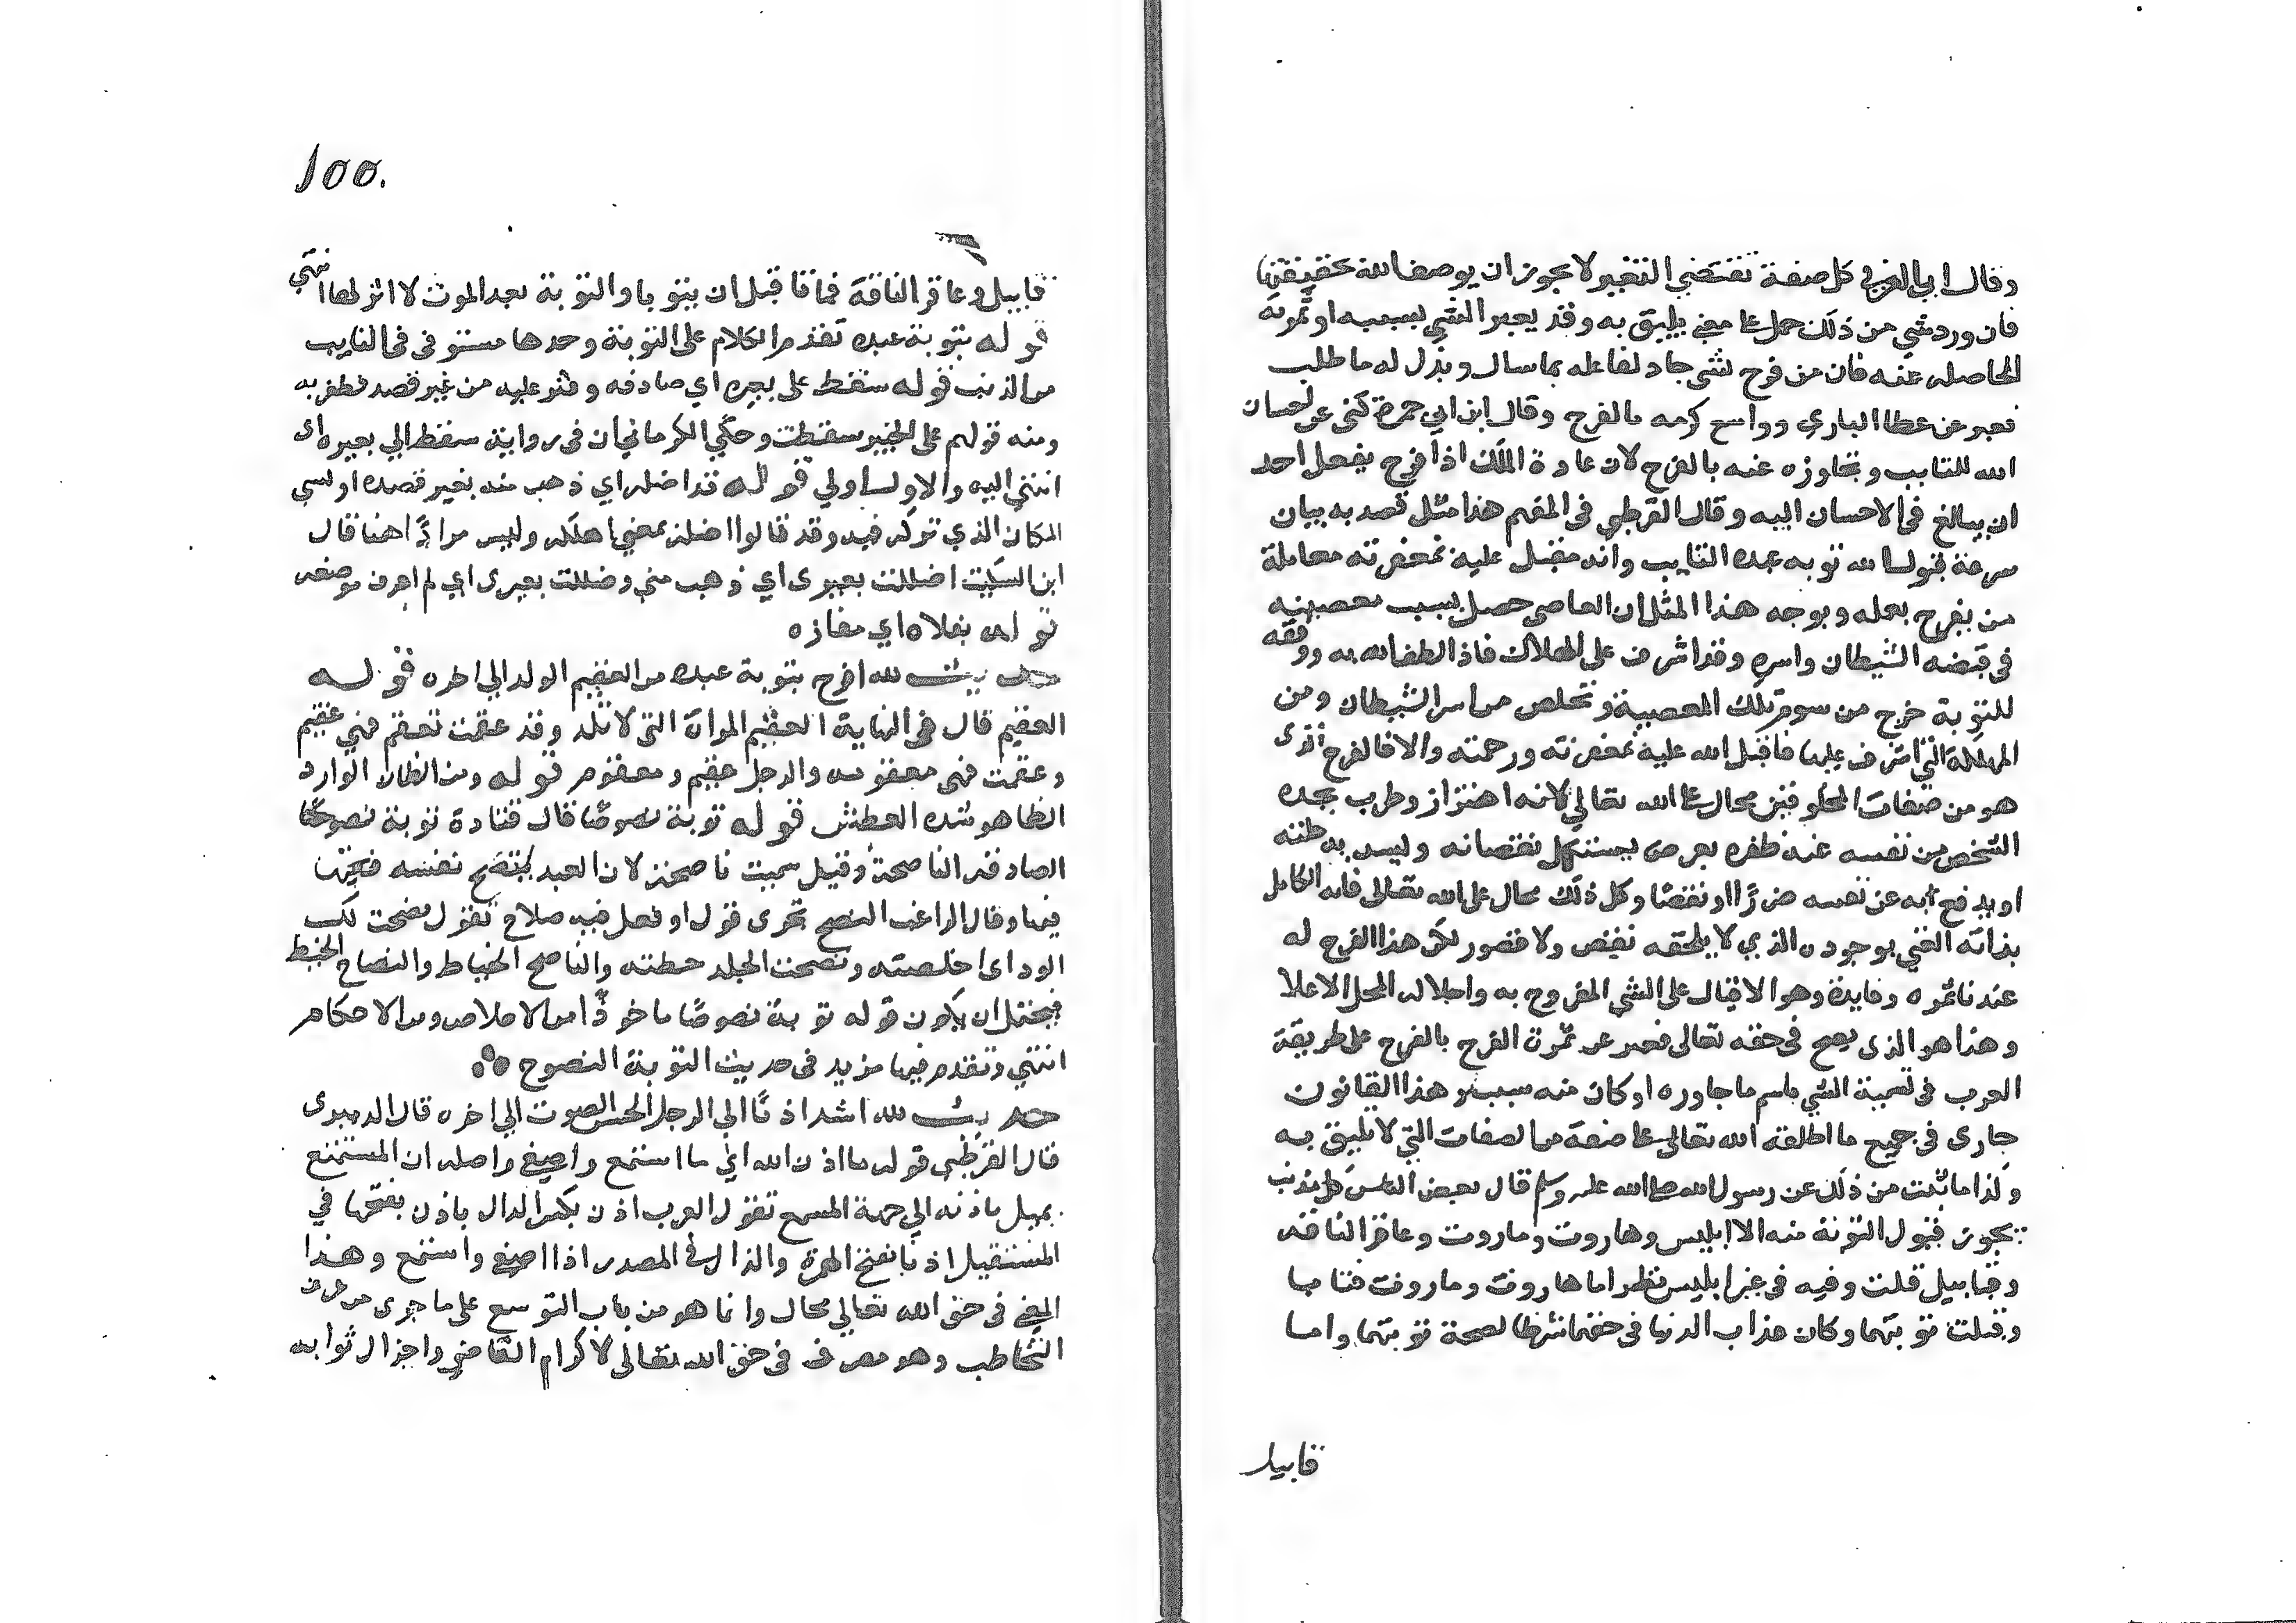 وقال ابن العربي كل صفة تقتضي التغير لا يجوز ان يوصف الله بحقيقتها
فان ورد شي من ذلك حمل على معني يليق به وقد يعبر الشي بسببه او ثمرته
الحاصله عنه فان من فرح بشي جاد لفاعله بما سال وبذل له ما طلب
فعبر عن عطا الباري وواسع كرمه بالفرح وقال ابن ابي جمرة كنى عن احسان
الله للتايب وتجاوزه عنه بالفرح لان عادة الملك اذا فرح بفعل احد
ان يبالغ في الاحسان اليه وقال القرطبي في المفهم هذا مثل قصد به بيان
سرعة قبول الله توبه عبده التايب وانه مقبل عليه بمغفرته معاملة
من يفرح بعمله ووجه هذا المثل ان العاصي حصل بسبب معصيته
في قبضه الشيطان واسره وقد اشرف على الهلاك فاذا لطف الله به ووفقه
للتوبة خرج من سوم تلك المعصية وتخلص من اسر الشيطان ومن
المهلكة التي اشرف عليها فاقبل الله عليه بمغفرته ورحمته والا فالفرح الذى
هو من صفات المخلوقين محال على الله تعالي لانه اهتزاز وطرب يجده
الشخص من نفسه عند ظفره بعرض يستكمل به نقصانه ويسد به خلته
او يدفع به عن نفسه ضررًا او نقصًا وكل ذلك محال على الله تعالى فانه الكامل
بذاته الغني بوجوده الذي لا يلحقه نقص ولا قصور لكن هذا الفرح له
عندنا ثمره وفايدة وهو الاقبال على الشي المفروح به واحلاله المحل الاعلا
وهذا هو الذى يصح في حقه تعالى فعبر عن ثمرة الفرح بالفرح على طريقة
العرب في تسمية الشي باسم ما جاوره او كان منه سبب وهذا القانون
جارى في جميع ما اطلقه الله تعالى على صفة من الصفات التي لا تليق به
وكذا ما ثبت من ذلك عن رسول الله صلى الله عليه وسلم قال بعض الناس كل مذنب
يجوز قبول التوبة منه الا ابليس وهاروت وماروت وعاقر الناقه
وقابيل قلت وفيه في غير ابليس نظر اما هاروت وماروت فتابا
وقبلت توبتهما وكان عذاب الدنيا في حقهما شرطا لصحة توبتهما واما
قابيل
١٥٥.
قابيل وعاقر الناقة فماتا قبل ان يتوبا والتوبة بعد الموت لا اثر لها انتهي
قوله بتوبة عبده تقدم الكلام على التوبة وحدها مستوفى في التايب
من الذنب قوله سقط على بعيره اي صادفه وعثر عليه من غير قصد فظفر به
ومنه قولهم على الخبير سقطت وحكي الكرماني ان في رواية سقط الي بعيره اى
انتهي اليه والاول اولي قوله قد اضله اي ذهب منه بغير قصده او نسي
المكان الذي تركه فيه وقد قالوا اضله بمعني اهلكه وليس مرادًا هنا قال
ابن السكيت اضللت بعيرى اي ذهب مني وضللت بعيرى اي لم اعرف موضعه
قوله بفلاه اي مفازه
حديث لله افرح بتوبة عبده من العقيم الولد الي اخره قوله
العقيم قال في النهاية العقيم المراة التي لا تلد وقد عقمت تعقم فهي عقيم
وعقمت فهي معقومه والرجل عقيم ومعقوم قوله ومن الظمان الوارد
الظما هو شدة العطش قوله توبة نصوحًا قال قتادة توبة نصوحًا
الصادقه الناصحة وقيل سميت ناصحة لان العبد ينصح نفسه فيها
فيها وقال الراغب النصح تحرى قول او فعل فيه صلاح تقول نصحت لك
الود اى اخلصته ونصحت الجلد خطته والناصح الخياط والنصاح الخيط
فيحتمل ان يكون قوله توبة نصوحًا ماخوذًا من الاخلاص ومن الاحكام
انتهي وتقدم فيها مزيد في حديث التوبة النصوح
حديث لله اشد اذنًا الي الرجل الحسن الصوت الي اخره قال الدميرى
قال القرطبي قوله ما اذن الله اي ما استمع واصغي واصله ان المستمع
يميل باذنه الي جهة المسمع تقول العرب اذن بكسر الدال ياذن بفتحها في
المستقبل اذنا بفتح الهمزة والذال في المصدر اذا اصغي واستمع وهذا
المعني في حق الله تعالي محال وانما هو من باب التوسع على ما جرى من عرف
التخاطب وهو مصرف في حق الله تعالى لاكرام القاضي واجزال ثوابه